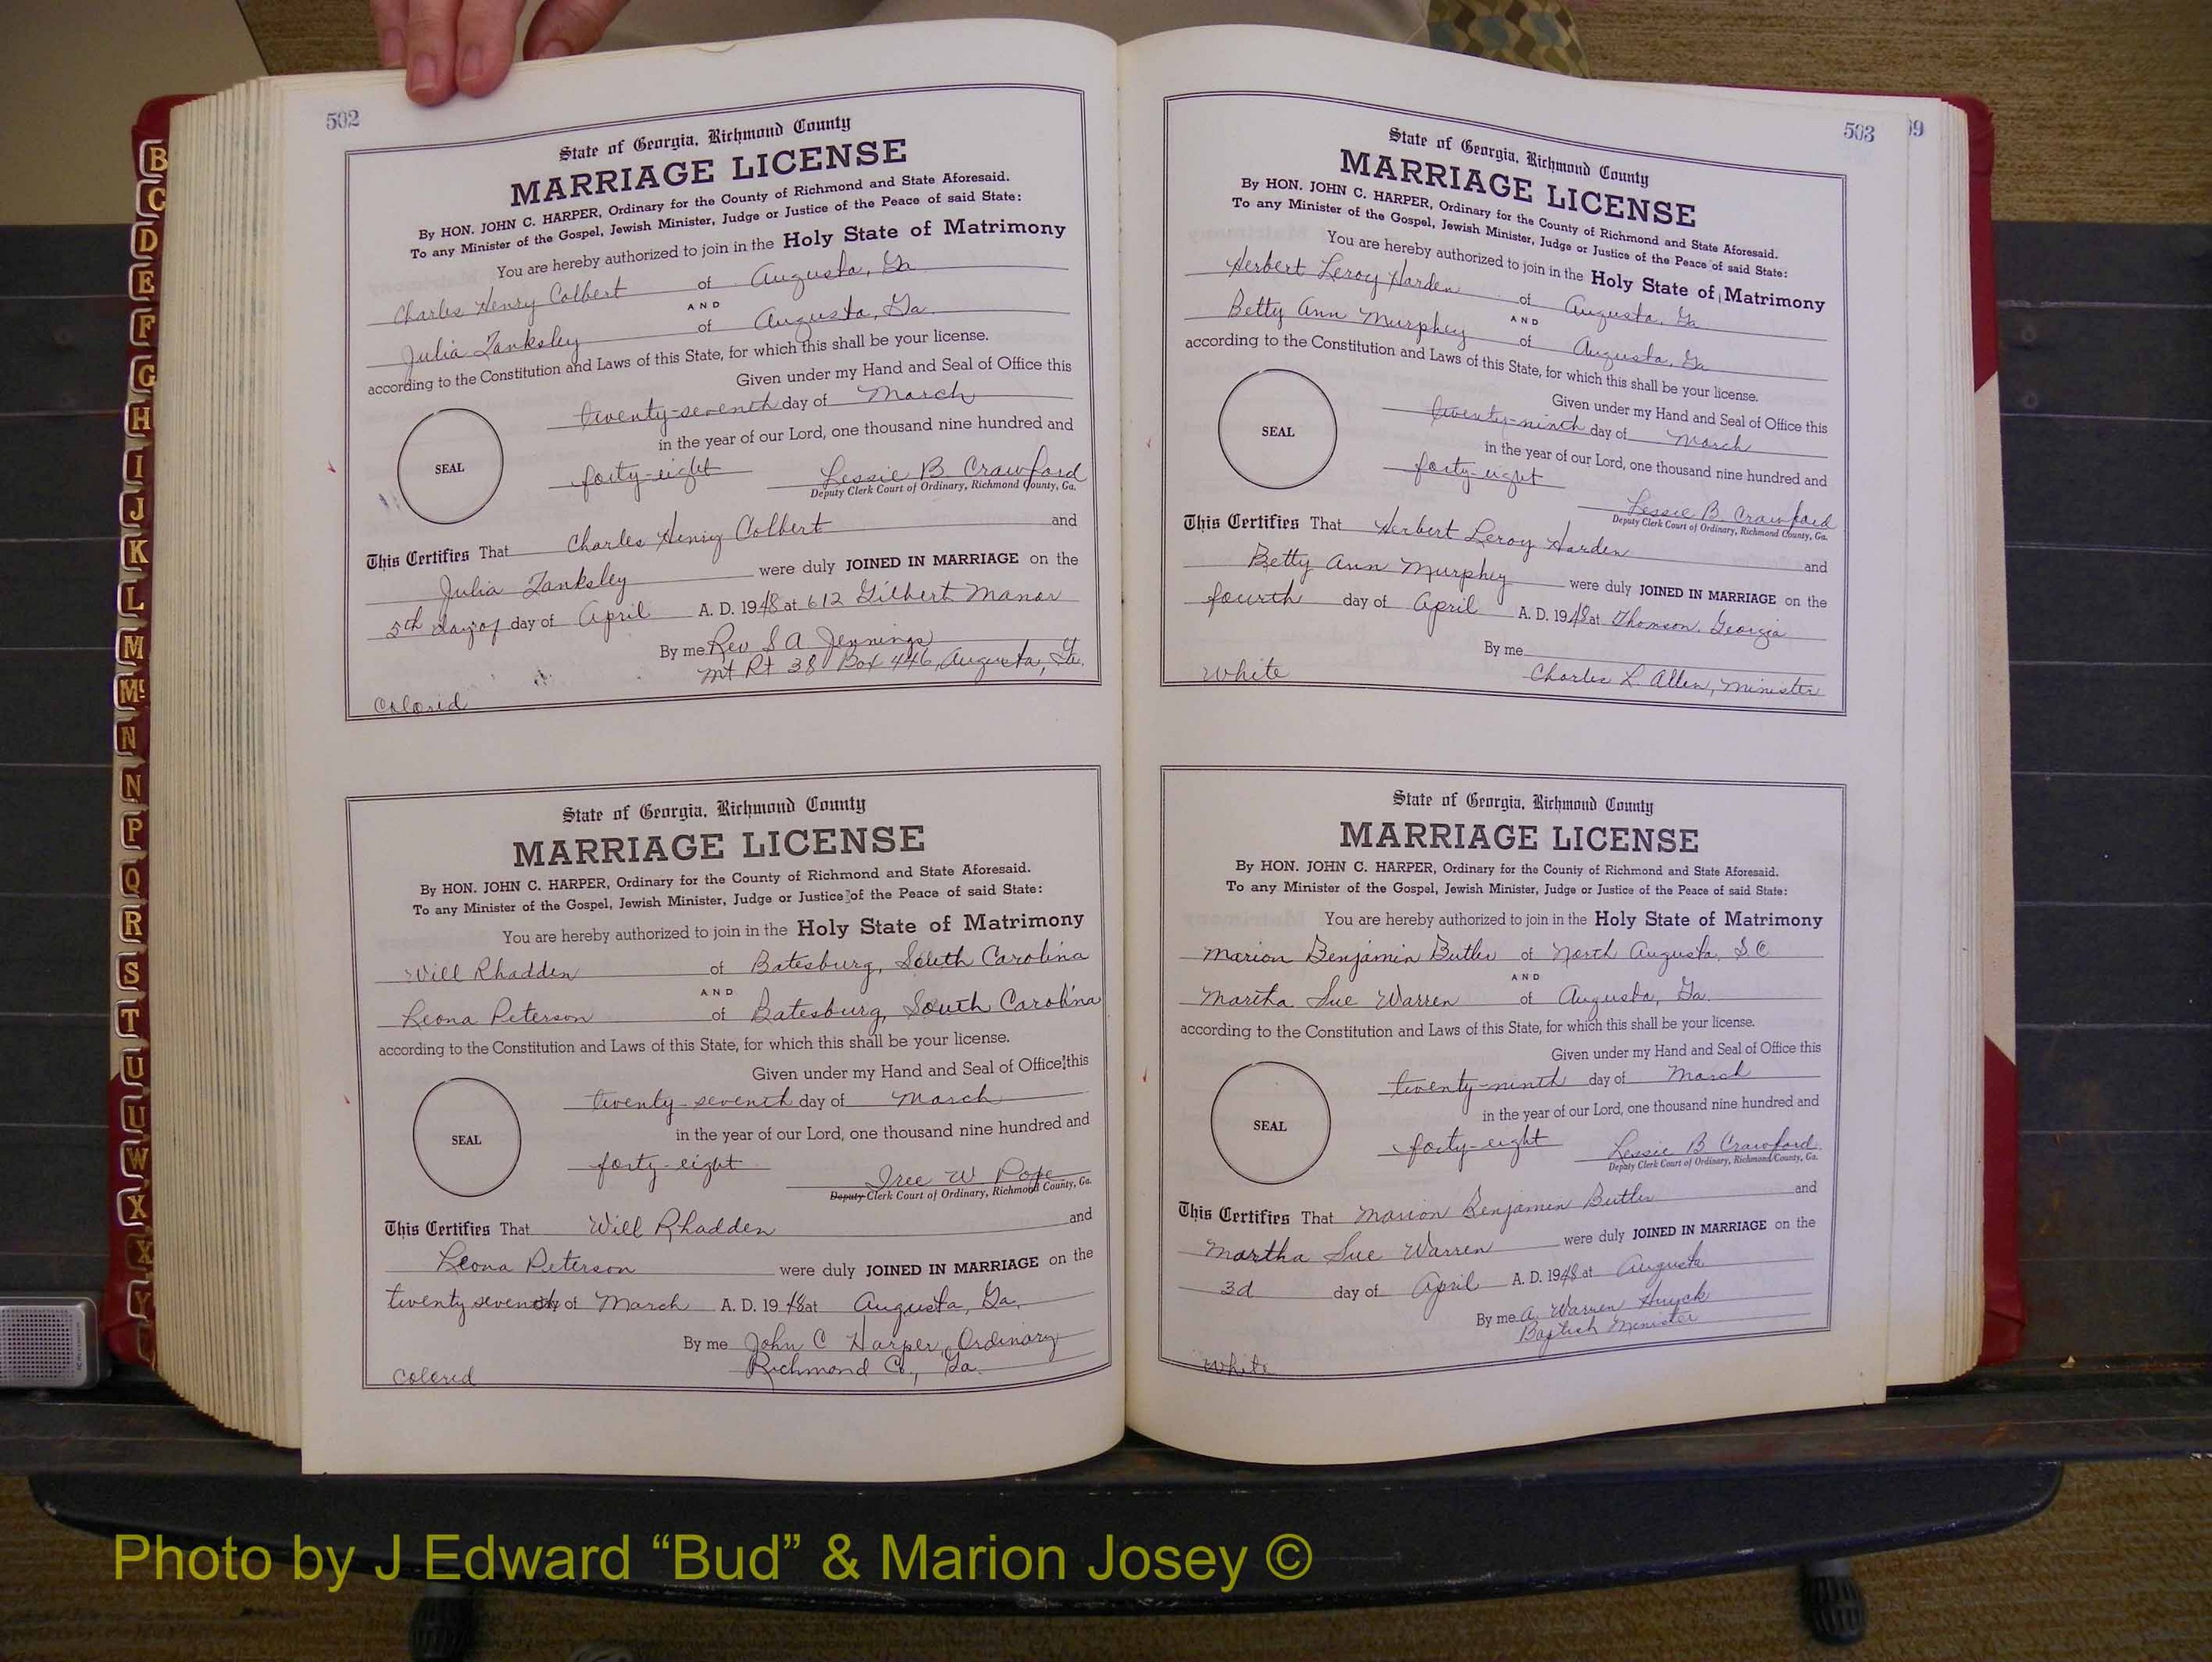 502
State of Georgia, Richmond County
MARRIAGE LICENSE
By HON. JOHN C. HARPER, Ordinary for the County of Richmond and State Aforesaid.
To any Minister of the Gospel, Jewish Minister, Judge or Justice of the Peace of said State:
You are hereby authorized to join in the Holy State of Matrimony
Charles Henry Colbert of Augusta, Ga
AND
Julia Tanksley of Augusta, Ga.
according to the Constitution and Laws of this State, for which this shall be your license.
Given under my Hand and Seal of Office this
twenty-seventh day of March
in the year of our Lord, one thousand nine hundred and
SEAL
forty-eight Lessie B. Crawford
Deputy Clerk Court of Ordinary, Richmond County, Ga.
This Certifies That Charles Henry Colbert and
Julia Tanksley were duly JOINED IN MARRIAGE on the
5th day of day of April A. D. 1948 at 612 Gilbert Manor
By me Rev S A Jennings
Mt Rt 38 Box 446, Augusta, Ga.
Colored
State of Georgia, Richmond County
MARRIAGE LICENSE
By HON. JOHN C. HARPER, Ordinary for the County of Richmond and State Aforesaid.
To any Minister of the Gospel, Jewish Minister, Judge or Justice of the Peace of said State:
You are hereby authorized to join in the Holy State of Matrimony
Will Rhadden of Batesburg, South Carolina
AND
Leona Peterson of Batesburg, South Carolina
according to the Constitution and Laws of this State, for which this shall be your license.
Given under my Hand and Seal of Office this
twenty-seventh day of March
in the year of our Lord, one thousand nine hundred and
SEAL
forty-eight Iree W. Pope
Deputy Clerk Court of Ordinary, Richmond County, Ga.
This Certifies That Will Rhadden and
Leona Peterson were duly JOINED IN MARRIAGE on the
twenty seventh day of March A. D. 1948 at Augusta, Ga.
By me John C Harper, Ordinary
Richmond Co., Ga.
Colored
503
99
State of Georgia, Richmond County
MARRIAGE LICENSE
By HON. JOHN C. HARPER, Ordinary for the County of Richmond and State Aforesaid.
To any Minister of the Gospel, Jewish Minister, Judge or Justice of the Peace of said State:
You are hereby authorized to join in the Holy State of Matrimony
Herbert Leroy Harden of Augusta, Ga
AND
Betty Ann Murphey of Augusta, Ga
according to the Constitution and Laws of this State, for which this shall be your license.
Given under my Hand and Seal of Office this
twenty-ninth day of March
in the year of our Lord, one thousand nine hundred and
SEAL
forty-eight Lessie B. Crawford
Deputy Clerk Court of Ordinary, Richmond County, Ga.
This Certifies That Herbert Leroy Harden and
Betty Ann Murphey were duly JOINED IN MARRIAGE on the
fourth day of April A. D. 1948 at Thomson, Georgia
By me
Charles L. Allen, Minister
White
State of Georgia, Richmond County
MARRIAGE LICENSE
By HON. JOHN C. HARPER, Ordinary for the County of Richmond and State Aforesaid.
To any Minister of the Gospel, Jewish Minister, Judge or Justice of the Peace of said State:
You are hereby authorized to join in the Holy State of Matrimony
Marion Benjamin Butler of North Augusta, S C
AND
Martha Sue Warren of Augusta, Ga.
according to the Constitution and Laws of this State, for which this shall be your license.
Given under my Hand and Seal of Office this
twenty-ninth day of March
in the year of our Lord, one thousand nine hundred and
SEAL
forty-eight Lessie B Crawford
Deputy Clerk Court of Ordinary, Richmond County, Ga.
This Certifies That Marion Benjamin Butler and
Martha Sue Warren were duly JOINED IN MARRIAGE on the
3d day of April A. D. 1948 at Augusta
By me A. Warren Huyck
Baptist Minister
White
B
C
D
E
F
G
H
I
J
K
L
M
Mc
N
N
P
Q
R
S
T
U
U
W
X
X
Y
Photo by J Edward “Bud” & Marion Josey ©